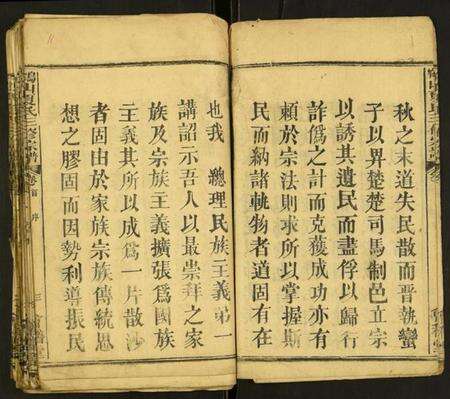 秋之末道失民散而晉執蠻
子以畀楚楚司馬制邑立宗
以誘其遺民而盡俘以歸行
詐僞之計而克獲成功亦有
賴於宗法則求所以掌握斯
民而納諸軌物者道固有在
也我 總理民族主義弟一
講詔示吾人以最崇拜之家
族及宗族主義擴張爲國族
主義其所以成爲一片散沙
者固由於家族宗族傳統思
想之膠固而因勢利導振民